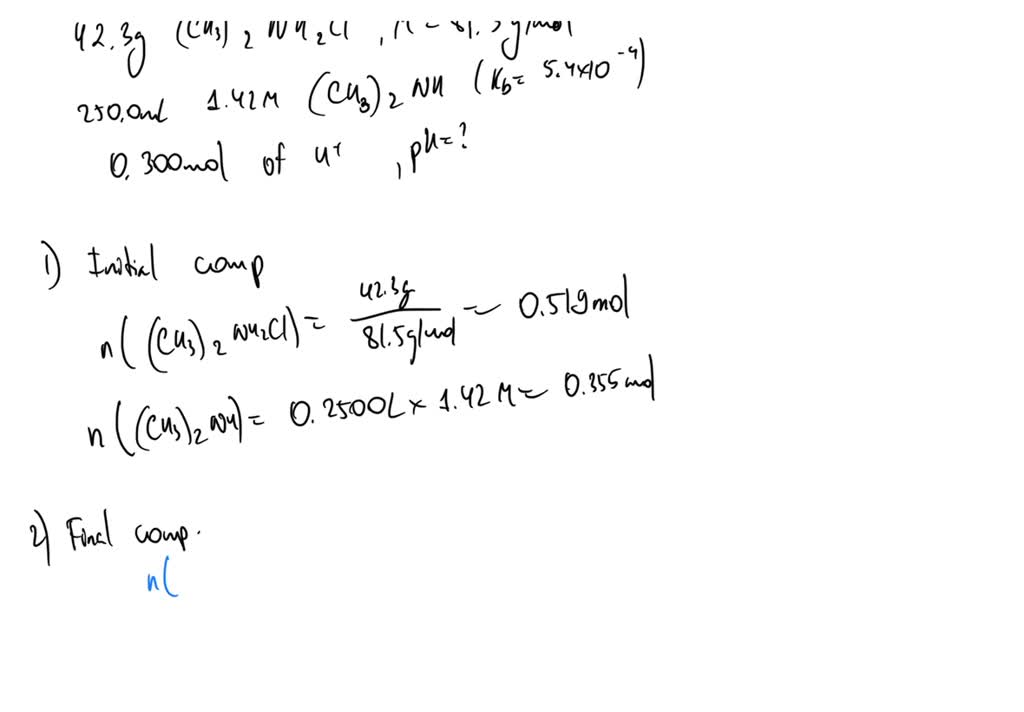 42.3g (CH3)2 NH2Cl , M = 81.5 g/mol
250.0mL 1.42M (CH3)2 NH (Kb= 5.4×10-4)
0.300mol of H+ , pH=?
1) Initial comp
n((CH3)2 NH2Cl) = 42.3g / 81.5g/mol = 0.519mol
n((CH3)2 NH) = 0.2500L × 1.42 M = 0.355 mol
2) Final comp.
n(